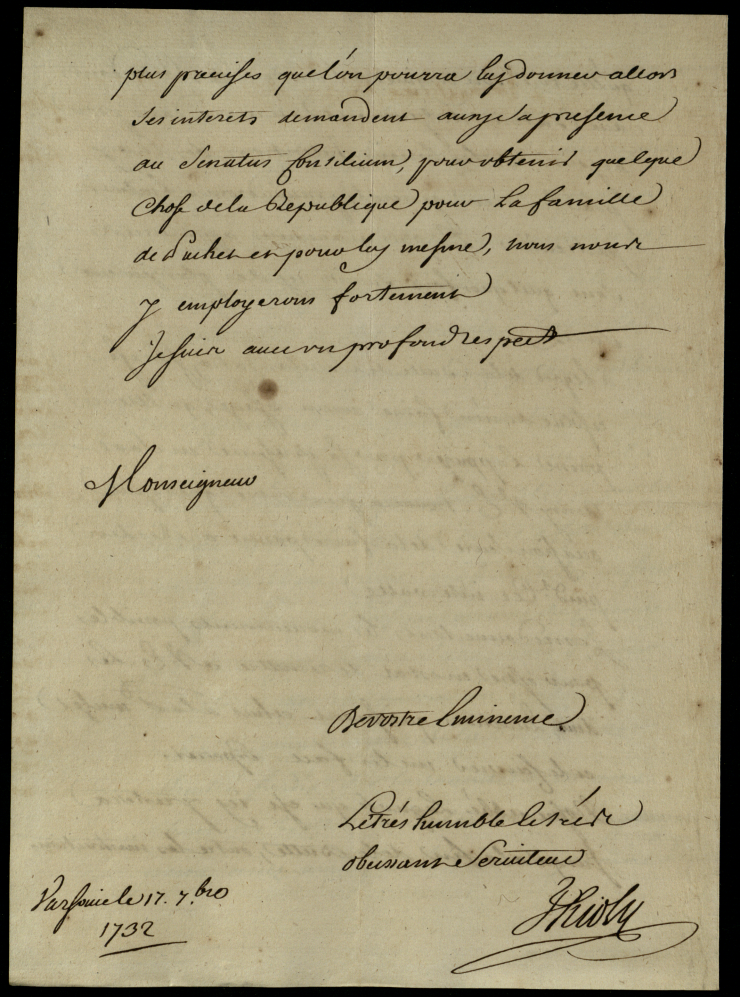 plus precises que lón pourra luy donner allors
ses interets demandent aussy sa presence
au Senatus Consilium, pour obtenir quelque
Chose de la Republique pour La famille
de et pour luy mesme, nous nous
y employerons fortement
Je suis avec un profond respect
Monseigneur
De vostre Eminence
Le trés humble et trés
obeissant Serviteur
Varsovie le 17. 7.bro
1732